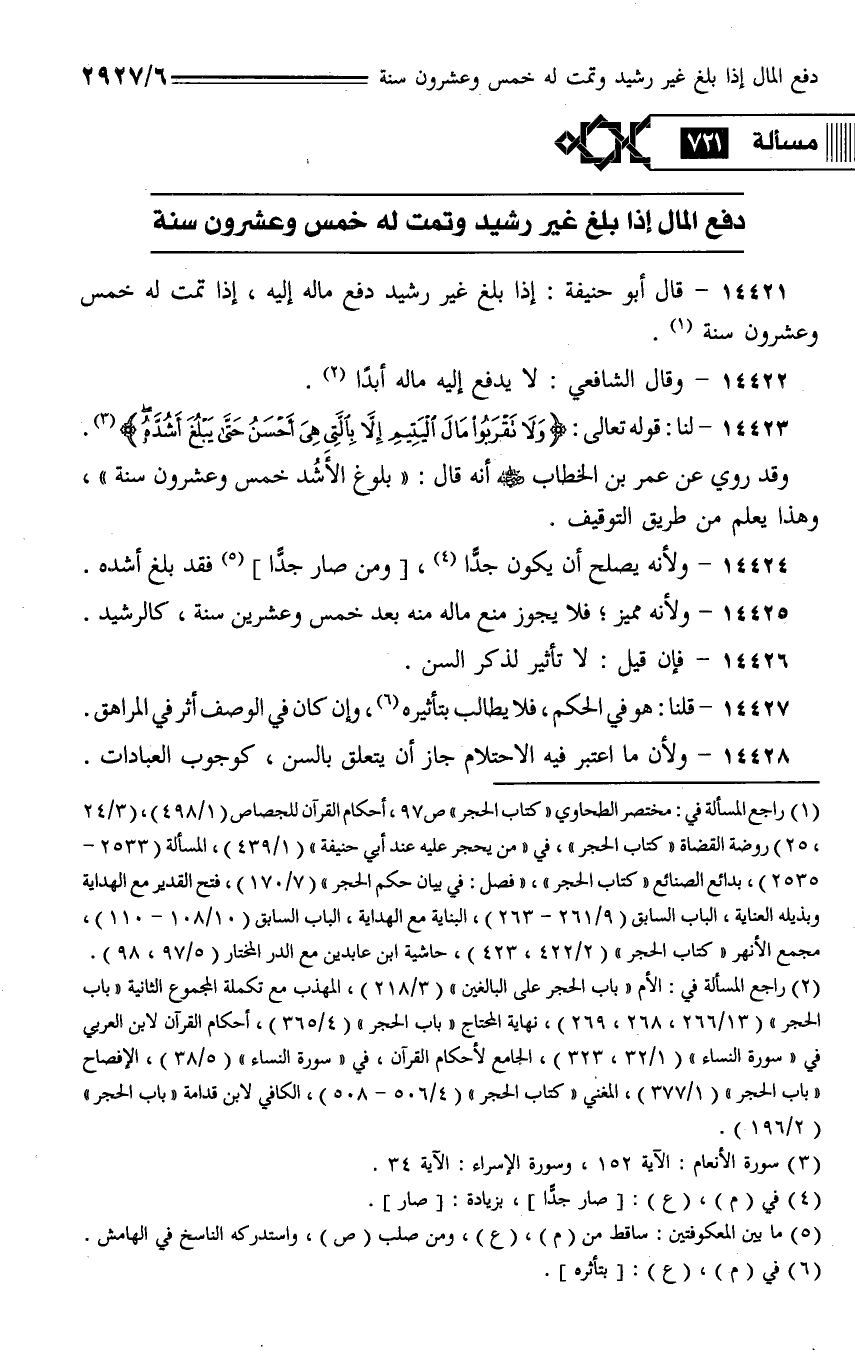 دفع المال إذا بلغ غير رشيد وتمت له خمس وعشرون سنة ٢٩٢٧/٦
مسألة ٧٢١
دفع المال إذا بلغ غير رشيد وتمت له خمس وعشرون سنة
١٤٤٢١ – قال أبو حنيفة : إذا بلغ غير رشيد دفع ماله إليه ، إذا تمت له خمس
وعشرون سنة (١) .
١٤٤٢٢ – وقال الشافعي : لا يدفع إليه ماله أبدًا (٢) .
١٤٤٢٣ – لنا : قوله تعالى : ﴿ وَلَا نَقْرَبُوا۟ مَالَ ٱلْيَتِيمِ إِلَّا بِٱلَّتِى هِىَ أَحْسَنُ حَتَّىٰ يَبْلُغَ أَشُدَّهُۥ ﴾ (٣) .
وقد روي عن عمر بن الخطاب ﷺ أنه قال : « بلوغ الأَشُد خمس وعشرون سنة » ،
وهذا يعلم من طريق التوقيف .
١٤٤٢٤ – ولأنه يصلح أن يكون جدًّا (٤) ، [ ومن صار جدًّا ] (٥) فقد بلغ أشده .
١٤٤٢٥ – ولأنه مميز ؛ فلا يجوز منع ماله منه بعد خمس وعشرين سنة ، كالرشيد .
١٤٤٢٦ – فإن قيل : لا تأثير لذكر السن .
١٤٤٢٧ – قلنا : هو في الحكم ، فلا يطالب بتأثيره (٦) ، وإن كان في الوصف أثر في المراهق .
١٤٤٢٨ – ولأن ما اعتبر فيه الاحتلام جاز أن يتعلق بالسن ، كوجوب العبادات .
(١) راجع المسألة في : مختصر الطحاوي « كتاب الحجر » ص٩٧ ، أحكام القرآن للجصاص ( ٤٩٨/١ ) ، ( ٢٤/٣
، ٢٥ ) روضة القضاة « كتاب الحجر » ، في « من يحجر عليه عند أبي حنيفة » ( ٤٣٩/١ ) ، المسألة ( ٢٥٣٣ –
٢٥٣٥ ) ، بدائع الصنائع « كتاب الحجر » ، « فصل : في بيان حكم الحجر » ( ١٧٠/٧ ) ، فتح القدير مع الهداية
وبذيله العناية ، الباب السابق ( ٢٦١/٩ – ٢٦٣ ) ، البناية مع الهداية ، الباب السابق ( ١٠٨/١٠ – ١١٠ ) ،
مجمع الأنهر « كتاب الحجر » ( ٤٢٢/٢ ، ٤٢٣ ) ، حاشية ابن عابدين مع الدر المختار ( ٩٧/٥ ، ٩٨ ) .
(٢) راجع المسألة في : الأم « باب الحجر على البالغين » ( ٢١٨/٣ ) ، المهذب مع تكملة المجموع الثانية « باب
الحجر » ( ٢٦٦/١٣ ، ٢٦٨ ، ٢٦٩ ) ، نهاية المحتاج « باب الحجر » ( ٣٦٥/٤ ) ، أحكام القرآن لابن العربي
في « سورة النساء » ( ٣٢/١ ، ٣٢٣ ) ، الجامع لأحكام القرآن ، في « سورة النساء » ( ٣٨/٥ ) ، الإفصاح
« باب الحجر » ( ٣٧٧/١ ) ، المغني « كتاب الحجر » ( ٥٠٦/٤ – ٥٠٨ ) ، الكافي لابن قدامة « باب الحجر »
( ١٩٦/٢ ) .
(٣) سورة الأنعام : الآية ١٥٢ ، وسورة الإسراء : الآية ٣٤ .
(٤) في ( م ) ، ( ع ) : [ صار جدًّا ] ، بزيادة : [ صار ] .
(٥) ما بين المعكوفتين : ساقط من ( م ) ، ( ع ) ، ومن صلب ( ص ) ، واستدركه الناسخ في الهامش .
(٦) في ( م ) ، ( ع ) : [ بتأثره ] .